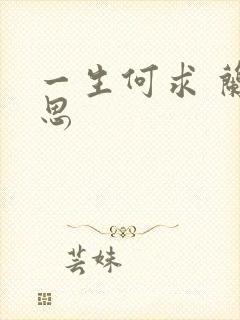 一生何求 蘭
思
芸妹